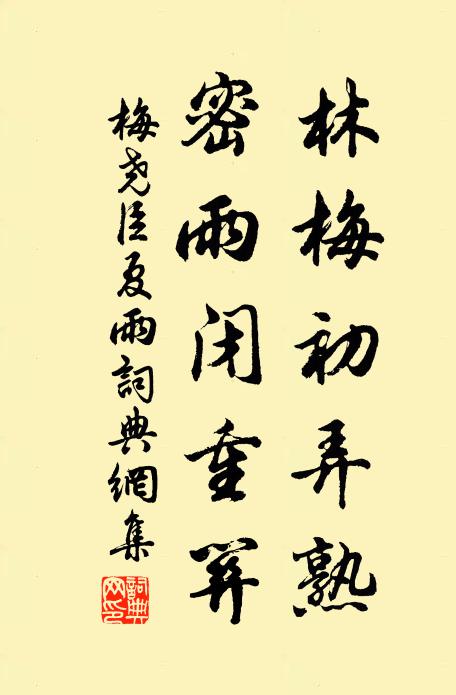 林梅初弄熟
密雨闭重关
梅尧臣夏雨詞典網集
詞典
网印